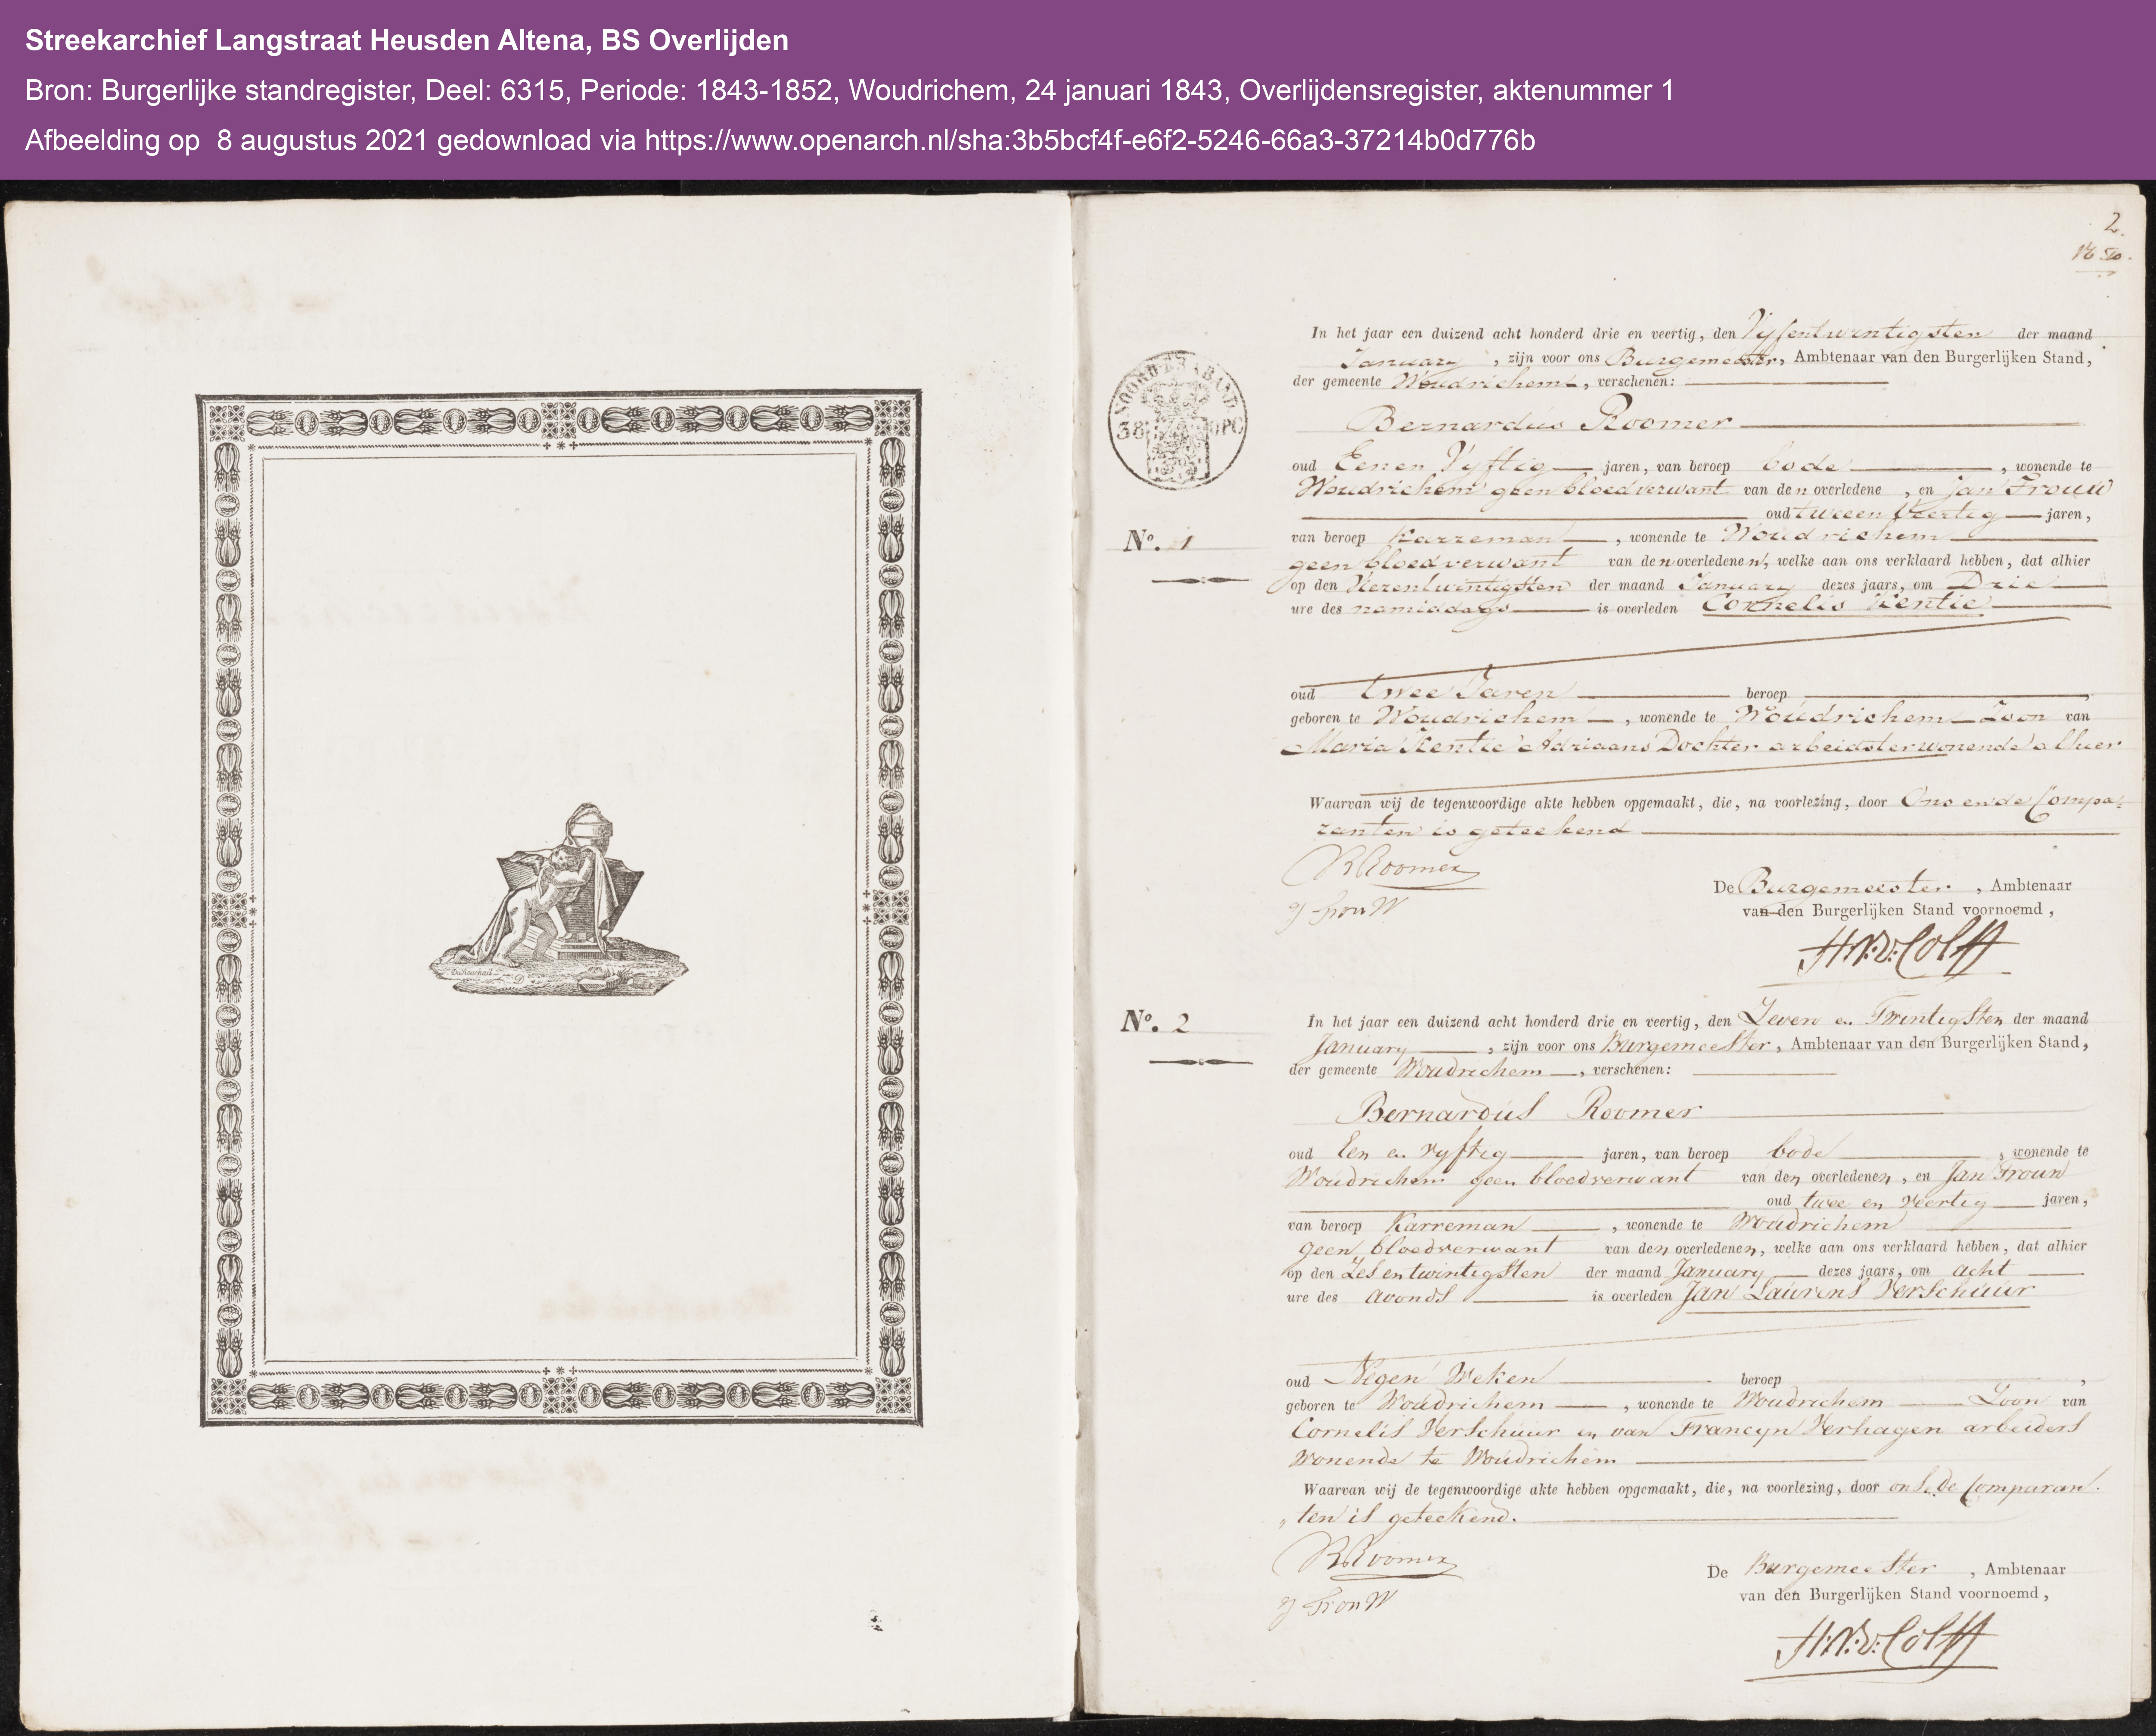 Streekarchief Langstraat Heusden Altena, BS Overlijden
Bron: Burgerlijke standregister, Deel: 6315, Periode: 1843-1852, Woudrichem, 24 januari 1843, Overlijdensregister, aktenummer 1
Afbeelding op 8 augustus 2021 gedownload via https://www.openarch.nl/sha:3b5bcf4f-e6f2-5246-66a3-37214b0d776b
2.
In het jaar een duizend acht honderd drie en veertig, den Vyfentwintigsten der maand
January, zijn voor ons Burgemeester, Ambtenaar van den Burgerlijken Stand,
der gemeente Woudrichem, verschenen:
NOORD BRABAND
38
Bernardus Roomer
oud Eenen Vyftig jaren, van beroep bode, wonende te
Woudrichem geen bloedverwant van den overledene, en Jan Trouw
oud tweeen Veertig jaren,
No. 1
van beroep Karreman, wonende te Woudrichem
geen bloedverwant van den overledenen, welke aan ons verklaard hebben, dat alhier
op den Vierentwintigsten der maand January dezes jaars, om Drie
ure des namiddags is overleden Cornelis Kentie
oud twee Jaren beroep
geboren te Woudrichem, wonende te Woudrichem Zoon van
Maria Kentie Adriaans Dochter arbeidster wonende alhier
Waarvan wij de tegenwoordige akte hebben opgemaakt, die, na voorlezing, door Ons en de Compa-
ranten is geteekend
B Roomer
De Burgemeester, Ambtenaar
J TrouW
van den Burgerlijken Stand voornoemd,
H.N.v: Colff
No. 2
In het jaar een duizend acht honderd drie en veertig, den Zeven en Twintigsten der maand
January, zijn voor ons Burgemeester, Ambtenaar van den Burgerlijken Stand,
der gemeente Woudrichem, verschenen:
Bernardus Roomer
oud Een en vyftig jaren, van beroep bode, wonende te
Woudrichem geen bloedverwant van den overledenen, en Jan Trouw
oud twee en Veertig jaren,
van beroep Karreman, wonende te Woudrichem
geen bloedverwant van den overledenen, welke aan ons verklaard hebben, dat alhier
op den Zesentwintigsten der maand January dezes jaars, om acht
ure des avonds is overleden Jan Laurens Verschuur
oud Negen Weken beroep,
geboren te Woudrichem, wonende te Woudrichem Zoon van
Cornelis Verschuur en van Francyn Verhagen arbeiders
wonende te Woudrichem
Waarvan wij de tegenwoordige akte hebben opgemaakt, die, na voorlezing, door ons. De Comparan
"ten is geteekend.
B Roomer
De Burgemeester, Ambtenaar
J TrouW
van den Burgerlijken Stand voornoemd,
H.N.v: Colff